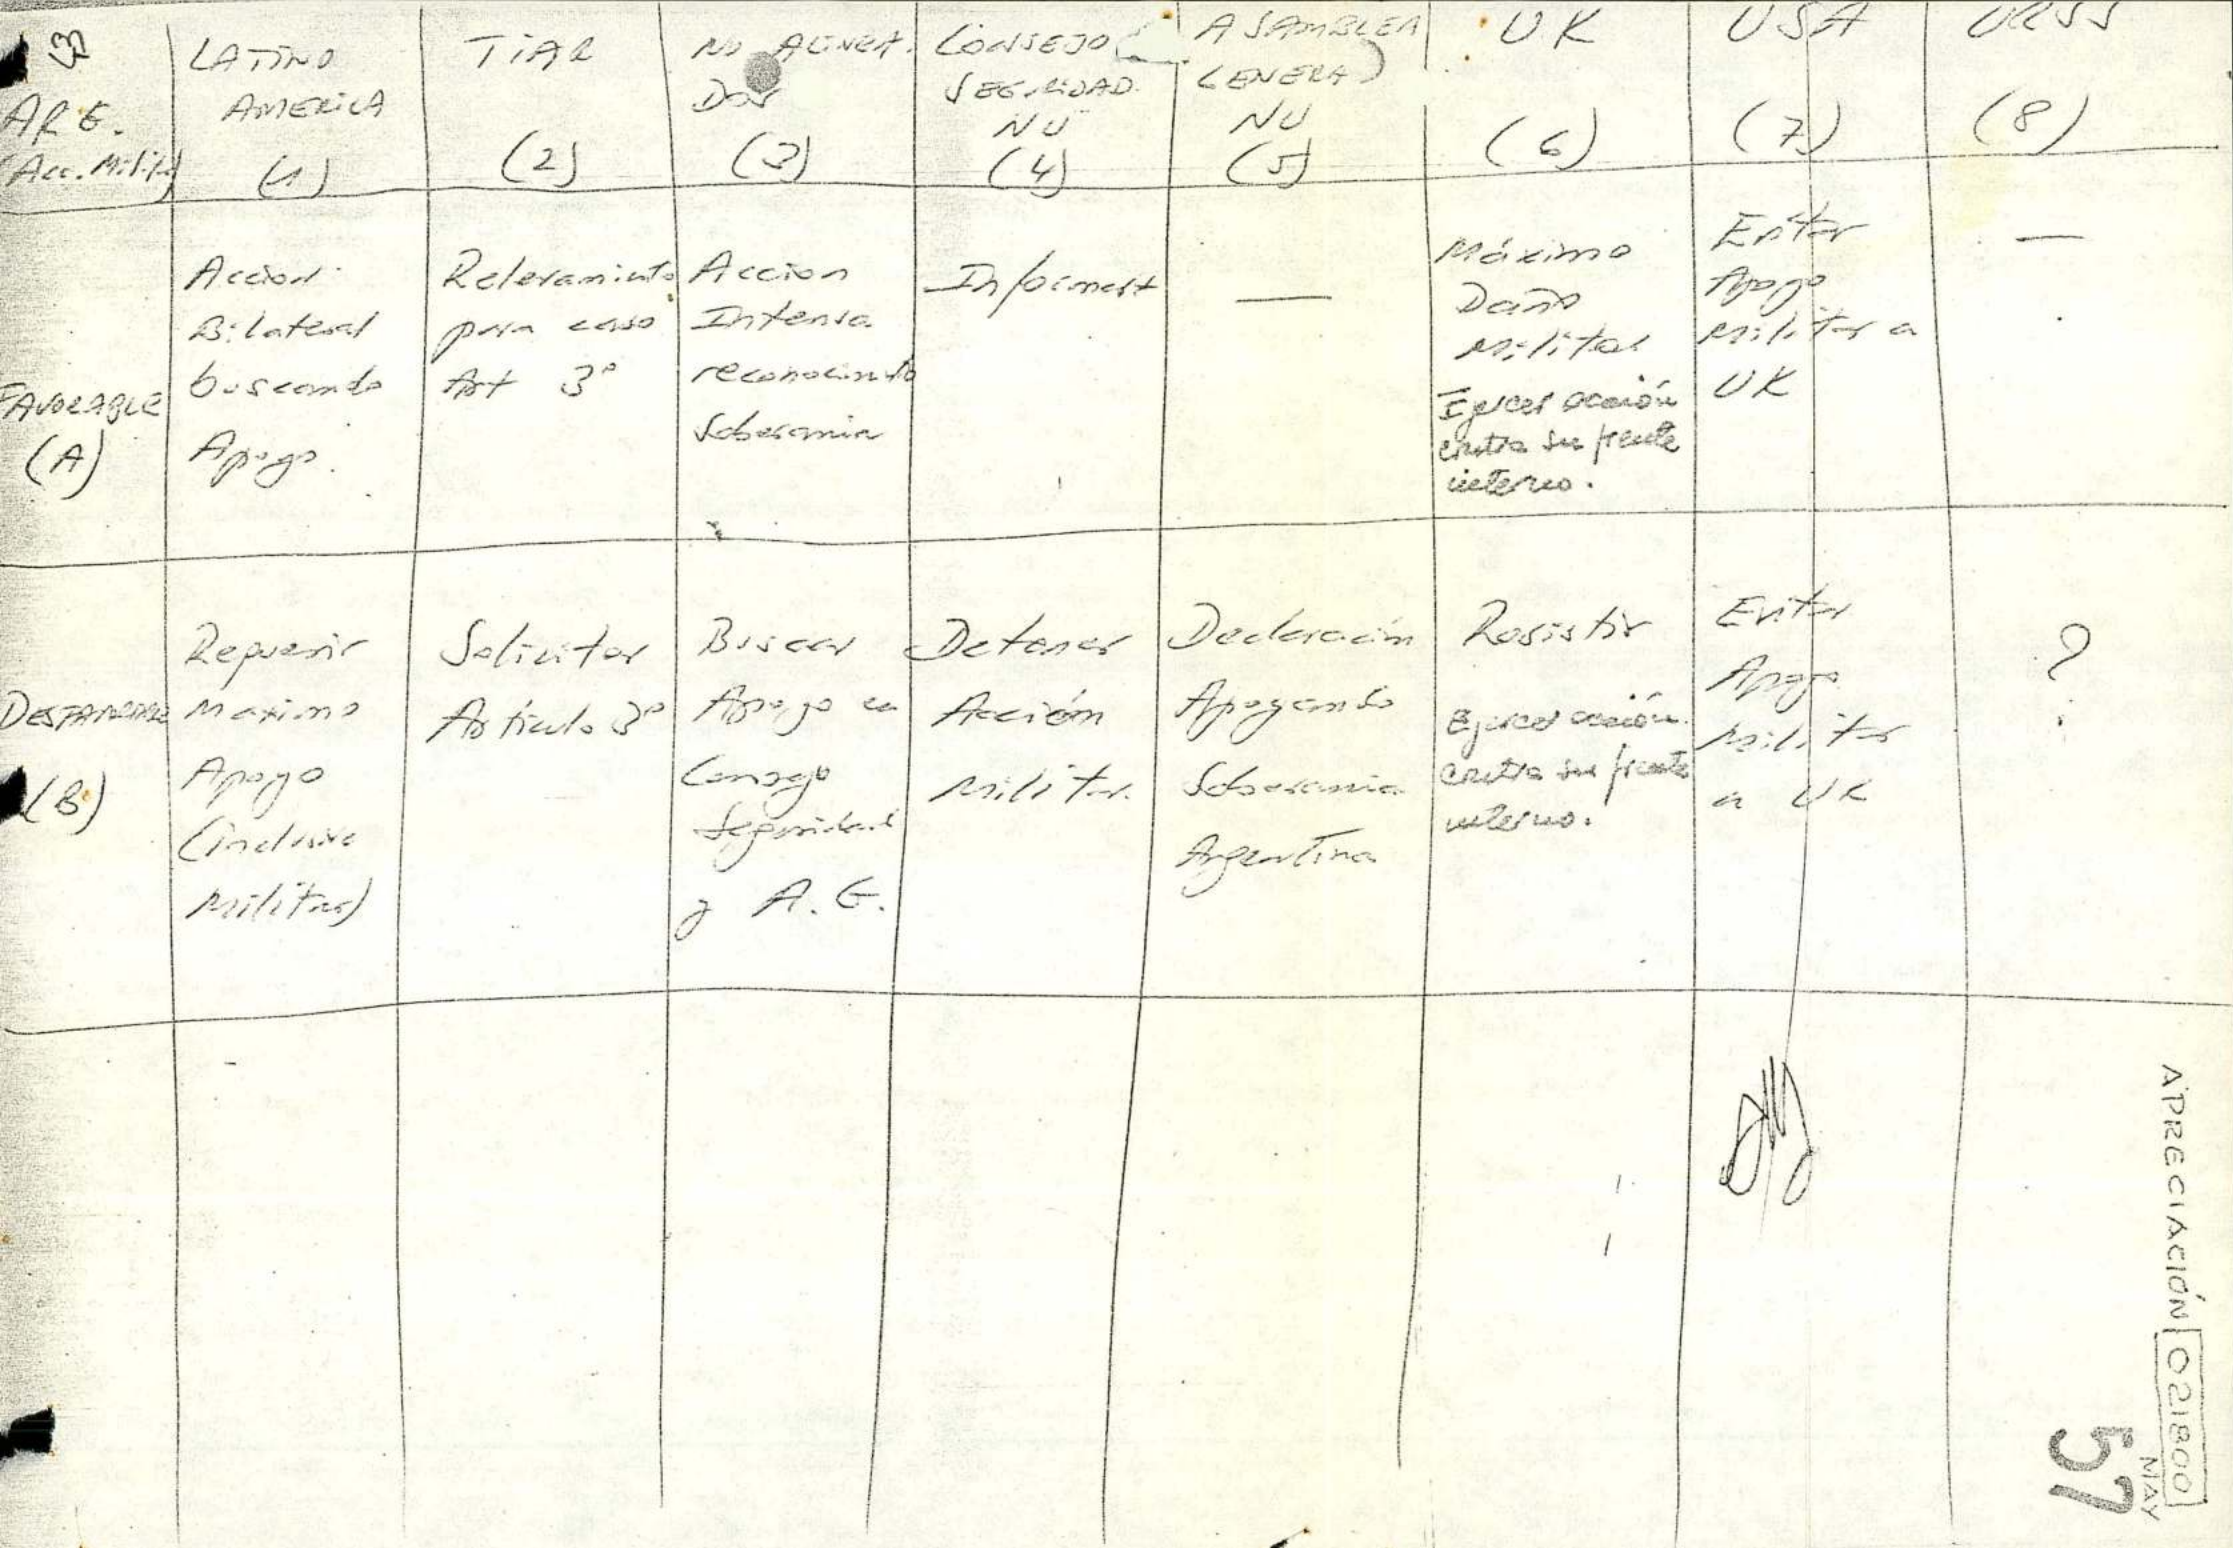 3
ARG.
(Acc. Milit)
LATINO
AMERICA
(1)
TIAR
(2)
NO ALINEA.
DOS
(3)
CONSEJO
SEGURIDAD.
NU
(4)
ASAMBLEA
GENERAL
NU
(5)
UK
(6)
USA
(7)
URSS
(8)
FAVORABLE
(A)
Accion
Bilateral
buscando
Apoyo.
Relevamiento
para caso
Art 3°
Accion
Intensa
reconocimiento
Soberania
—
Máximo
Daño
Militar
Ejercer acción
contra su frente
interno.
Evitar
Apoyo
Militar a
UK
—
(B)
Requerir
Maximo
Apoyo
(inclusive
Militar)
Solicitar
Artículo 3°
Buscar
Apoyo en
Consejo
Seguridad
y A. G.
Detener
Acción
Militar.
Declaración
Apoyando
Soberania
Argentina
Resistir
Ejercer acción
contra su frente
interno.
Evitar
Apoyo
Militar
a UK
?
APRECIACIÓN 021800
MAY
57